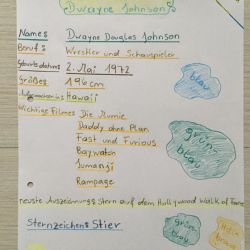 Dwayne Johnson
Name: Dwayne Douglas Johnson
Beruf: Wrestler und Schauspieler
Geburtsdatum: 2. Mai 1972
Größe: 196cm
Hawaii
Wichtige Filme: Die Mumie
Daddy ohne Plan
Fast und Furious
Baywatch
Jumanji
Rampage
neuste Auszeichnung: Stern auf dem Hollywood Walk of Fame
Sternzeichen: Stier
blau
grün
blau
grün
blau